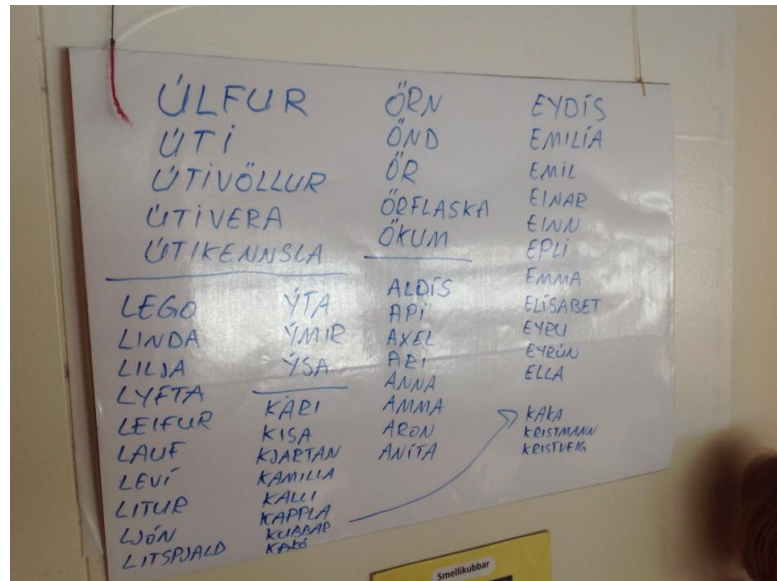 ÚLFUR
ÚTI
ÚTIVÖLLUR
ÚTIVERA
ÚTIKENNSLA
LEGO
LINDA
LILJA
LYFTA
LEIFUR
LAUF
LEVÍ
LITUR
LJÓN
LITSPJALD
ÝTA
ÝMIR
ÝSA
KÁRI
KISA
KJARTAN
KAMILLA
KALLI
KAPPLA
KUBBAR
KAKÓ
ÖRN
ÖND
ÖR
ÖRFLASKA
ÖKUM
ALDÍS
API
AXEL
ARI
ANNA
AMMA
ARON
ANÍTA
EYDÍS
EMILÍA
EMIL
EINAR
EINN
EPLI
EMMA
ELÍSABET
EYRÚN
ELLA
KAKA
KRISTMANN
KRISTVEIG
Smellikubbar